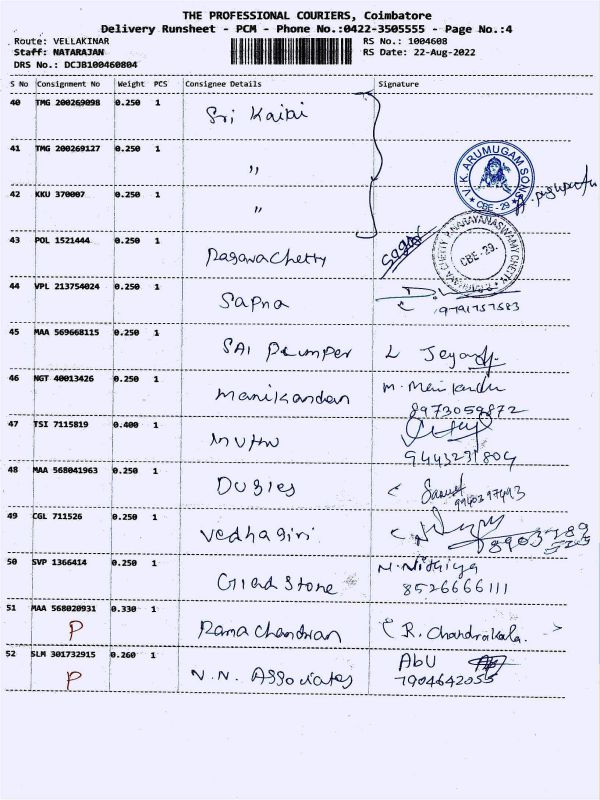 THE PROFESSIONAL COURIERS, Coimbatore
Delivery Runsheet - PCM - Phone No.:0422-3505555 - Page No.:4
Route: VELLAKINAR
RS No.: 1004608
Staff: NATARAJAN
RS Date: 22-Aug-2022
DRS No.: DCJB100460804
S No Consignment No Weight PCS Consignee Details Signature
40 TMG 200269098 0.250 1 Sri Kaipi
41 TMG 200269127 0.250 1 "
V.K. ARUMUGAM SONS
CBE - 29
42 KKU 370007 0.250 1 "
43 POL 1521444 0.250 1 Ragavachetty
NARAYANASWAMY CHETTY
CBE-29.
44 VPL 213754024 0.250 1 Sapna
9791757583
45 MAA 569668115 0.250 1 SAI Pumper L Jeyan
46 NGT 40013426 0.250 1 Manikandan M. Manikandan
8973059872
47 TSI 7115819 0.400 1 Muthu
9443231804
48 MAA 568041963 0.250 1 Dugies
9940397493
49 CGL 711526 0.250 1 Vedhagiri
50 SVP 1366414 0.250 1 Glad Stone N. Nithiya
8526666111
51 MAA 568020931 0.330 1 Rama Chandran R. Chandrakala.
P
52 SLM 301732915 0.260 1 N.N. Associates Abu
P 7904642055